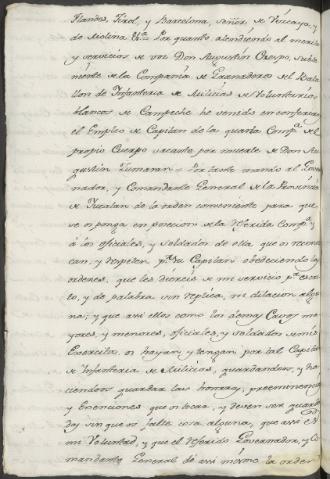 Flandes, Tirol, y Barcelona, Señor de Vizcaya, y
de Molina &a. Por quanto atendiendo al merito
y servicios de vos Don Agustin Crespo, subte-
niente de la Compañia de Granaderos del Batta
llon de Infanteria de Milicias de Voluntarios
blancos de Campeche he venido en conferir
el Empleo de Capitan de la quarta Comp.a del
propio Cuerpo vacante por muerte de Don Au
gustin
Por tanto mando al Gover
nador, y Comandante General de la Provincia
de Yucatan dè la orden conveniente para que
se os ponga en posesion de la referida Comp.a y
à los oficiales, y soldados de ella, que os reconoz
can, y respeten p.r su Capitan obedeciendo las
ordenes, que les diereis de mi servicio p.r escri
to, y de palabra sin replica, ni dilacion algu
na; y que assi ellos como los demas Cavos ma
yores, y menores, oficiales, y soldados de mis
Exercitos os hayan, y tengan por tal Capitan
de Infanteria de Milicias, guardandoos, y ha
ciendoos guardar las honras, preeminencias
y Exenciones que os tocan, y deven ser guarda
das sin que os falte cosa alguna, que assi es
mi Voluntad, y que el referido Governador, y Co
mandante General de assi mismo la orden